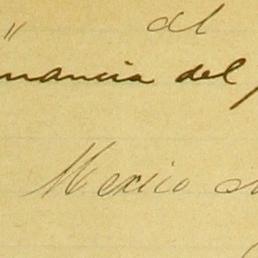 " al
mancia del
Mexico